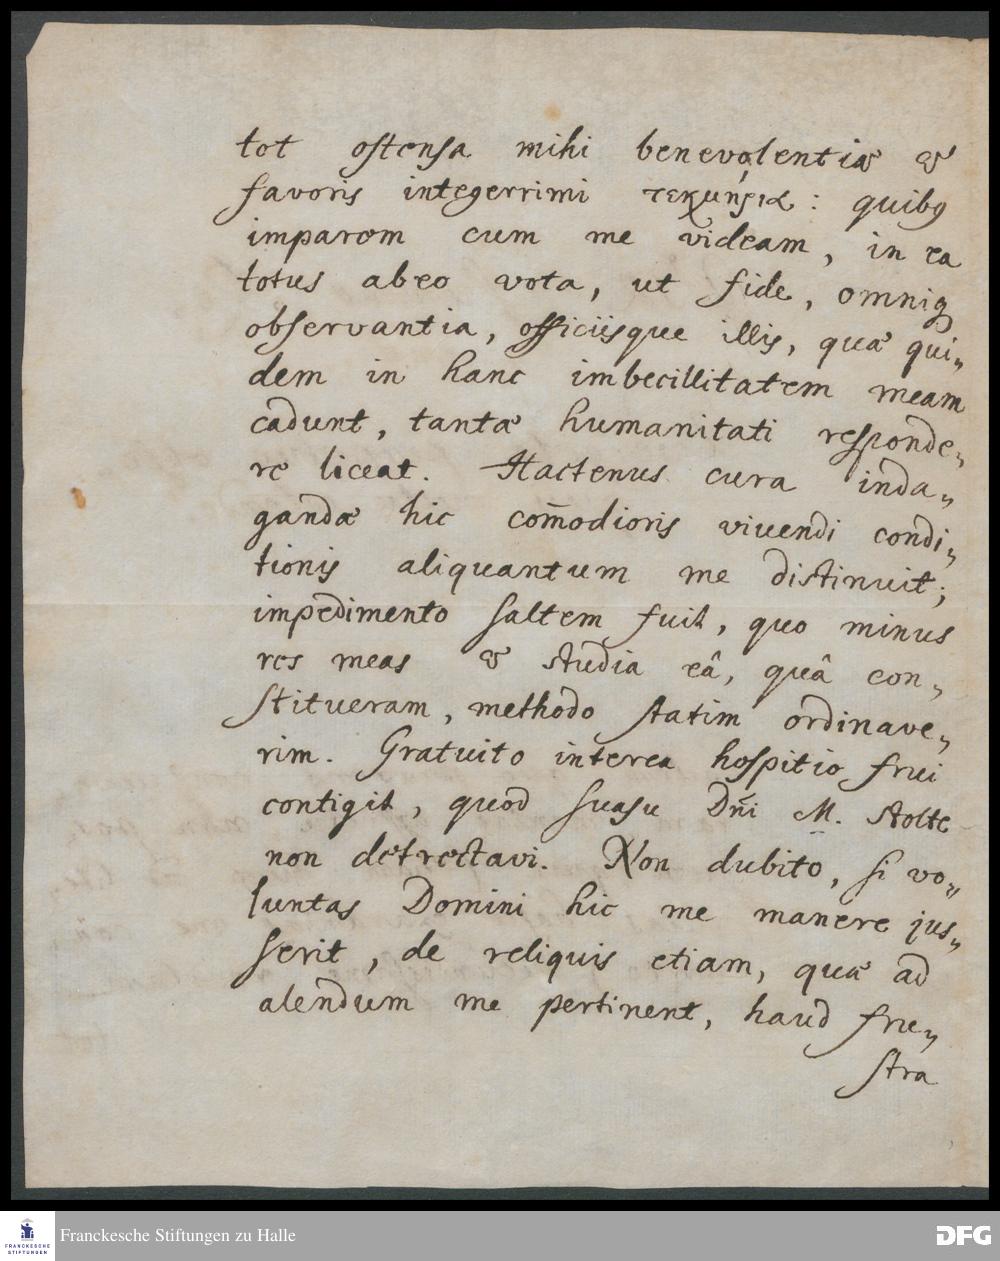 tot ostensa mihi benevolentiæ &
favoris integerrimi τεκμήρια: quibꝫ
imparem cum me videam, in ea
totus abeo vota, ut fide, omniqꝫ
observantia, officiisque illis, quæ qui„
dem in hanc imbecillitatem meam
cadunt, tantæ humanitati responde„
re liceat. Hactenus cura inda„
gandæ hic com̄odioris vivendi condi„
tionis aliquantum me distinuit;
impedimento saltem fuit, quo minus
res meas & studia eâ, quâ con„
stitueram, methodo statim ordinave„
rim. Gratuito interea hospitio frui
contigit, quod suasu Dn̄i M. Stolte
non detrectavi. Non dubito, si vo„
luntas Domini hic me manere jus„
serit, de reliquis etiam, quæ ad
alendum me pertinent, haud fru„
stra
Franckesche Stiftungen zu Halle
FRANCKESCHE
STIFTUNGEN
DFG